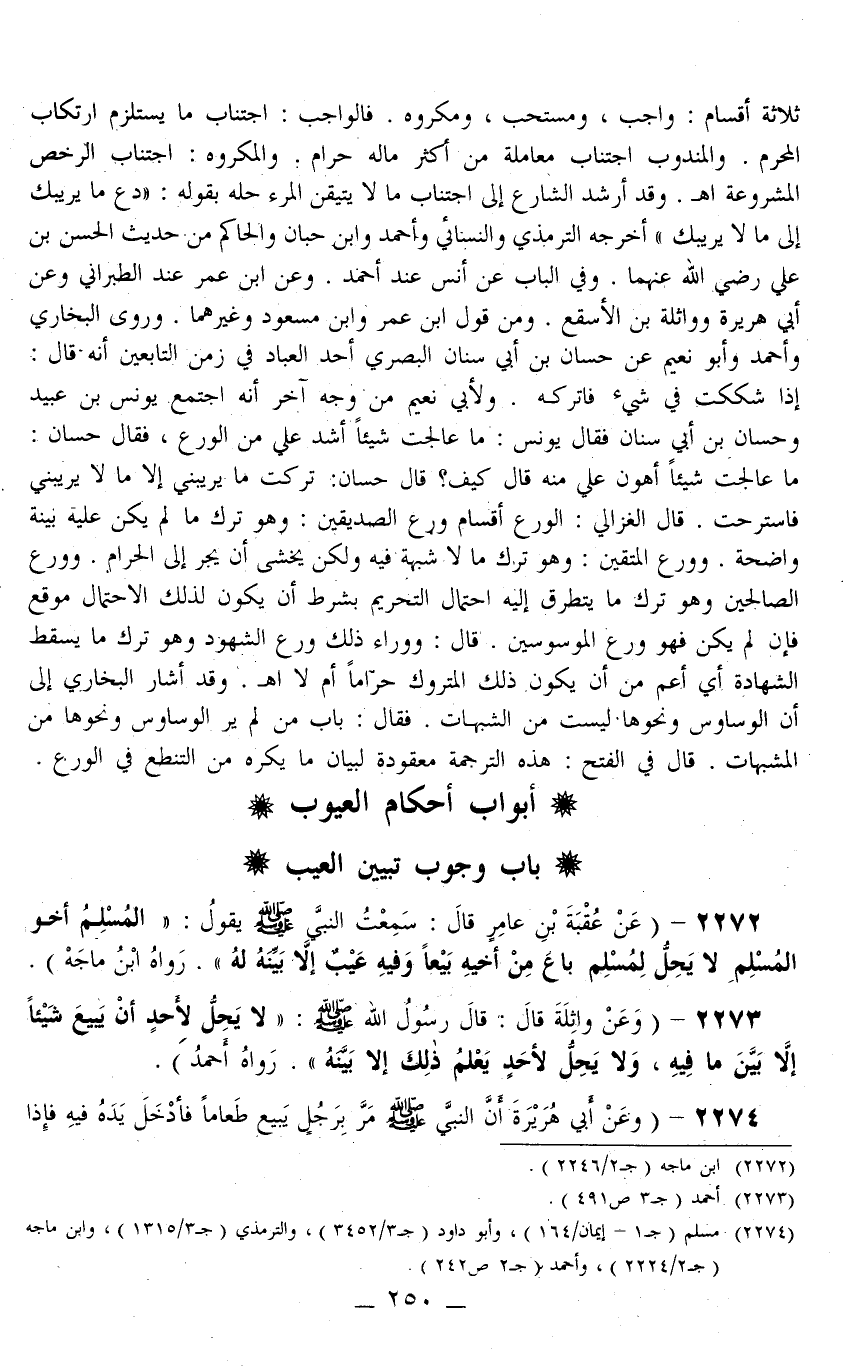 ثلاثة أقسام : واجب ، ومستحب ، ومكروه . فالواجب : اجتناب ما يستلزم ارتكاب
المحرم . والمندوب اجتناب معاملة من أكثر ماله حرام . والمكروه : اجتناب الرخص
المشروعة اهـ . وقد أرشد الشارع إلى اجتناب ما لا يتيقن المرء حله بقوله : «دع ما يريبك
إلى ما لا يريبك » أخرجه الترمذي والنسائي وأحمد وابن حبان والحاكم من حديث الحسن بن
علي رضي الله عنهما . وفي الباب عن أنس عند أحمد . وعن ابن عمر عند الطبراني وعن
أبي هريرة وواثلة بن الأسقع . ومن قول ابن عمر وابن مسعود وغيرهما . وروى البخاري
وأحمد وأبو نعيم عن حسان بن أبي سنان البصري أحد العباد في زمن التابعين أنه قال :
إذا شككت في شيء فاتركه . ولأبي نعيم من وجه آخر أنه اجتمع يونس بن عبيد
وحسان بن أبي سنان فقال يونس : ما عالجت شيئاً أشد علي من الورع ، فقال حسان :
ما عالجت شيئاً أهون علي منه قال كيف؟ قال حسان: تركت ما يريبني إلا ما لا يريبني
فاسترحت . قال الغزالي : الورع أقسام ورع الصديقين : وهو ترك ما لم يكن عليه بينة
واضحة . وورع المتقين : وهو ترك ما لا شبهة فيه ولكن يخشى أن يجر إلى الحرام . وورع
الصالحين وهو ترك ما يتطرق إليه احتمال التحريم بشرط أن يكون لذلك الاحتمال موقع
فإن لم يكن فهو ورع الموسوسين . قال : ووراء ذلك ورع الشهود وهو ترك ما يسقط
الشهادة أي أعم من أن يكون ذلك المتروك حرّاماً أم لا اهـ . وقد أشار البخاري إلى
أن الوساوس ونحوها ليست من الشبهات . فقال : باب من لم ير الوساوس ونحوها من
المشبهات . قال في الفتح : هذه الترجمة معقودة لبيان ما يكره من التنطع في الورع .
أبواب أحكام العيوب
باب وجوب تبيين العيب
٢٢٧٢ – ( عَنْ عُقْبَةَ بْنِ عامِرٍ قالَ : سَمِعْتُ النبيَّ ﷺ يقولُ : « المُسْلِمُ أخو
المُسْلِمِ لا يَحِلُّ لِمُسْلِم باعَ مِنْ أخيهِ بَيْعاً وَفيهِ عَيْبٌ إلَّا بَيَّنَهُ لهُ » . رَواهُ ابْنُ ماجَهْ ) .
٢٢٧٣ – ( وَعَنْ واثِلَةَ قالَ : قالَ رسُولُ الله ﷺ : « لا يَحِلُّ لِأَحدٍ أنْ يَبيعَ شَيْئاً
إلَّا بَيَّنَ ما فِيهِ ، وَلا يَحِلُّ لأحَدٍ يَعْلمُ ذٰلِكَ إلا بَيَّنَهُ » . رَواهُ أَحمدُ ) .
٢٢٧٤ – ( وعَنْ أبي هُرَيْرَةَ أَنَّ النبيَّ ﷺ مَرَّ بِرَجُلٍ يَبيع طَعاماً فأدْخَلَ يَدَهُ فيهِ فإذا
(٢٢٧٢) ابن ماجه ( جـ٢/٢٢٤٦ ) .
(٢٢٧٣) أحمد ( جـ٣ ص٤٩١ ) .
(٢٢٧٤) مسلم ( جـ١ – إيمان/١٦٤ ) ، وأبو داود ( جـ٣/٣٤٥٢ ) ، والترمذي ( جـ٣/١٣١٥ ) ، وابن ماجه
( جـ٢/٢٢٢٤ ) ، وأحمد ( جـ٢ ص٢٤٢ ) .
— ٢٥٠ —